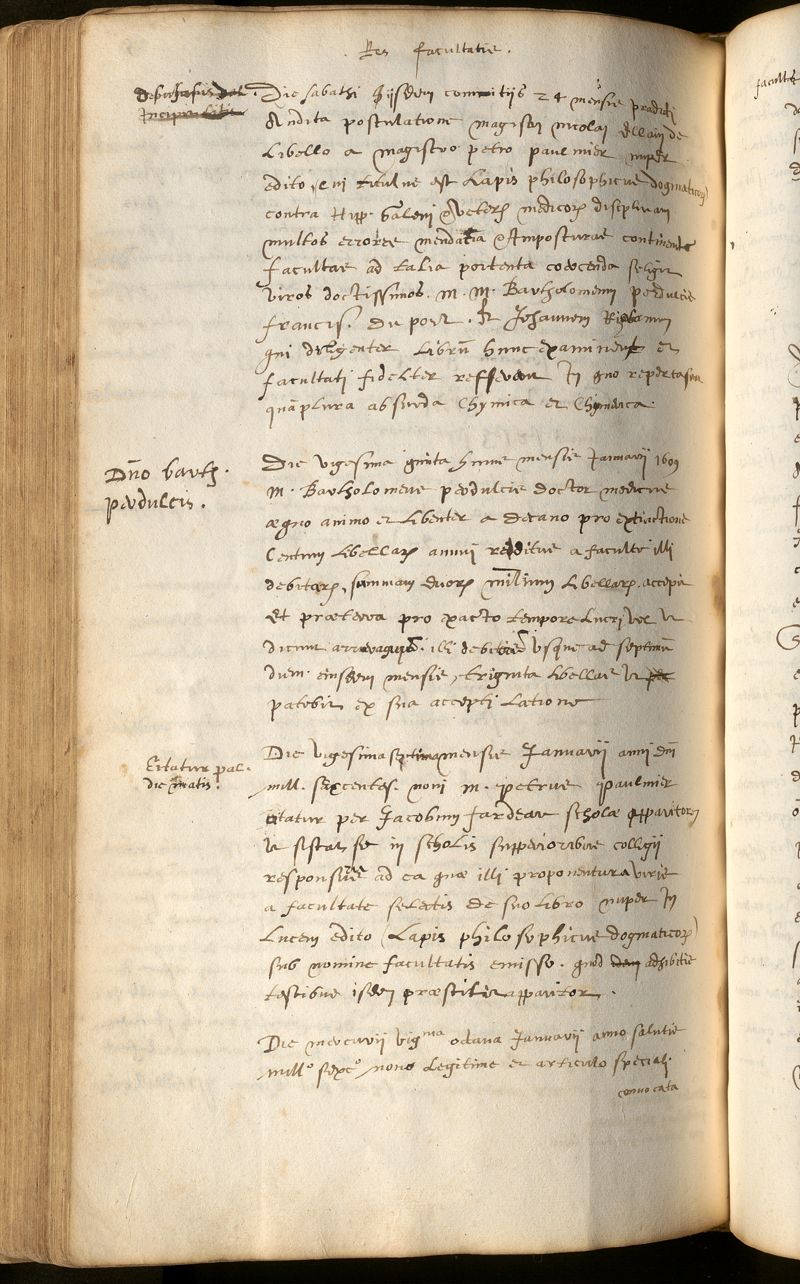 Res facultatis.
Die sabathi hijsdem comitijs 24 mensis praedicti
Audita postulatione magistri nicolai Ellain de
Libello a magistro petro paulmier nuper
edito, cui titulus est Lapis philosophicus dogmaticorum
contra Hipp. Galeni & veterum medicorum disciplinam
multos errores mendacia & Imposturas continente
facultas ad talia portenta coercenda seligit
viros doctissimos. M. M. Bartholomeum perdulcis
francis. du port. & Johannem Riolanum
qui diligenter librum hunc examinent et
facultati fideliter refferant In quo reperta sunt
quamplura absurda Chymica et Chymerica.
Dno barth.
perdulcis.
Die vigesima quinta huius mensis Januarij 1609
M. Bartholomeus perdulcis doctor medicus
aequo animo et libenter a decano pro extinctione
Centum libellarum annui redditus a faculte illi
debitarum, summam duorum millium libellarum. accepit
Et praeterea pro exacto tempore Lucri vel ut
dicunt arreragiorum. illi debitorum usque ad septimum
dum. eiusdem mensis, triginta libellas ut
patebit ex sua accepti latione
Citatur pal.
die matis.
Die vigesima septima mensis Januarij anni dni
mill. sexcentes. noni M. petrus paulmier
citatur per Jacobum Jardean scholae apparitorem
ut sistat se in scholis superioribus collegii
responsurus ad ea quae illi proponentur a viris
a facultate selectis de suo libro nuper In
Lucem edito (Lapis philosophicus dogmaticorum)
sub nomine facultatis emisso. quod adhibitis
testibus isdem praestitit apparitor.
Die mercurij vig^ma octava Januarij anno salutis
mill^o sexc^o nono legitime et articulo speciali
convocata